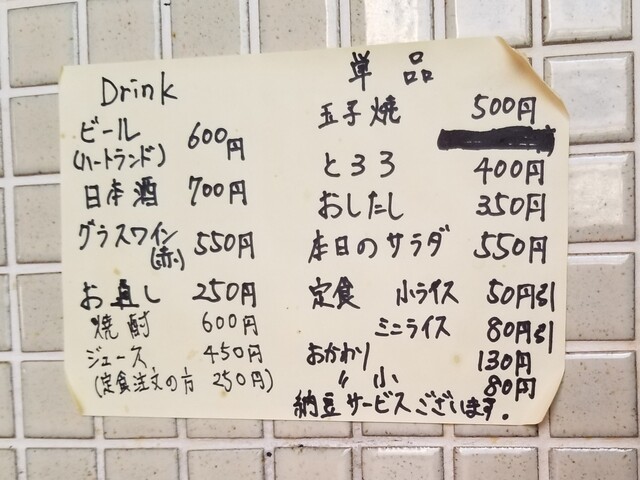 Drink
ビール 600円
(ハートランド)
日本酒 700円
グラスワイン 550円
(赤)
お直し 250円
焼酎 600円
ジュース 450円
(定食注文の方 250円)
単品
玉子焼 500円
とろろ 400円
おしたし 350円
本日のサラダ 550円
定食 小ライス 50円引
ミニライス 80円引
おかわり 130円
〃 小 80円
納豆サービスございます.